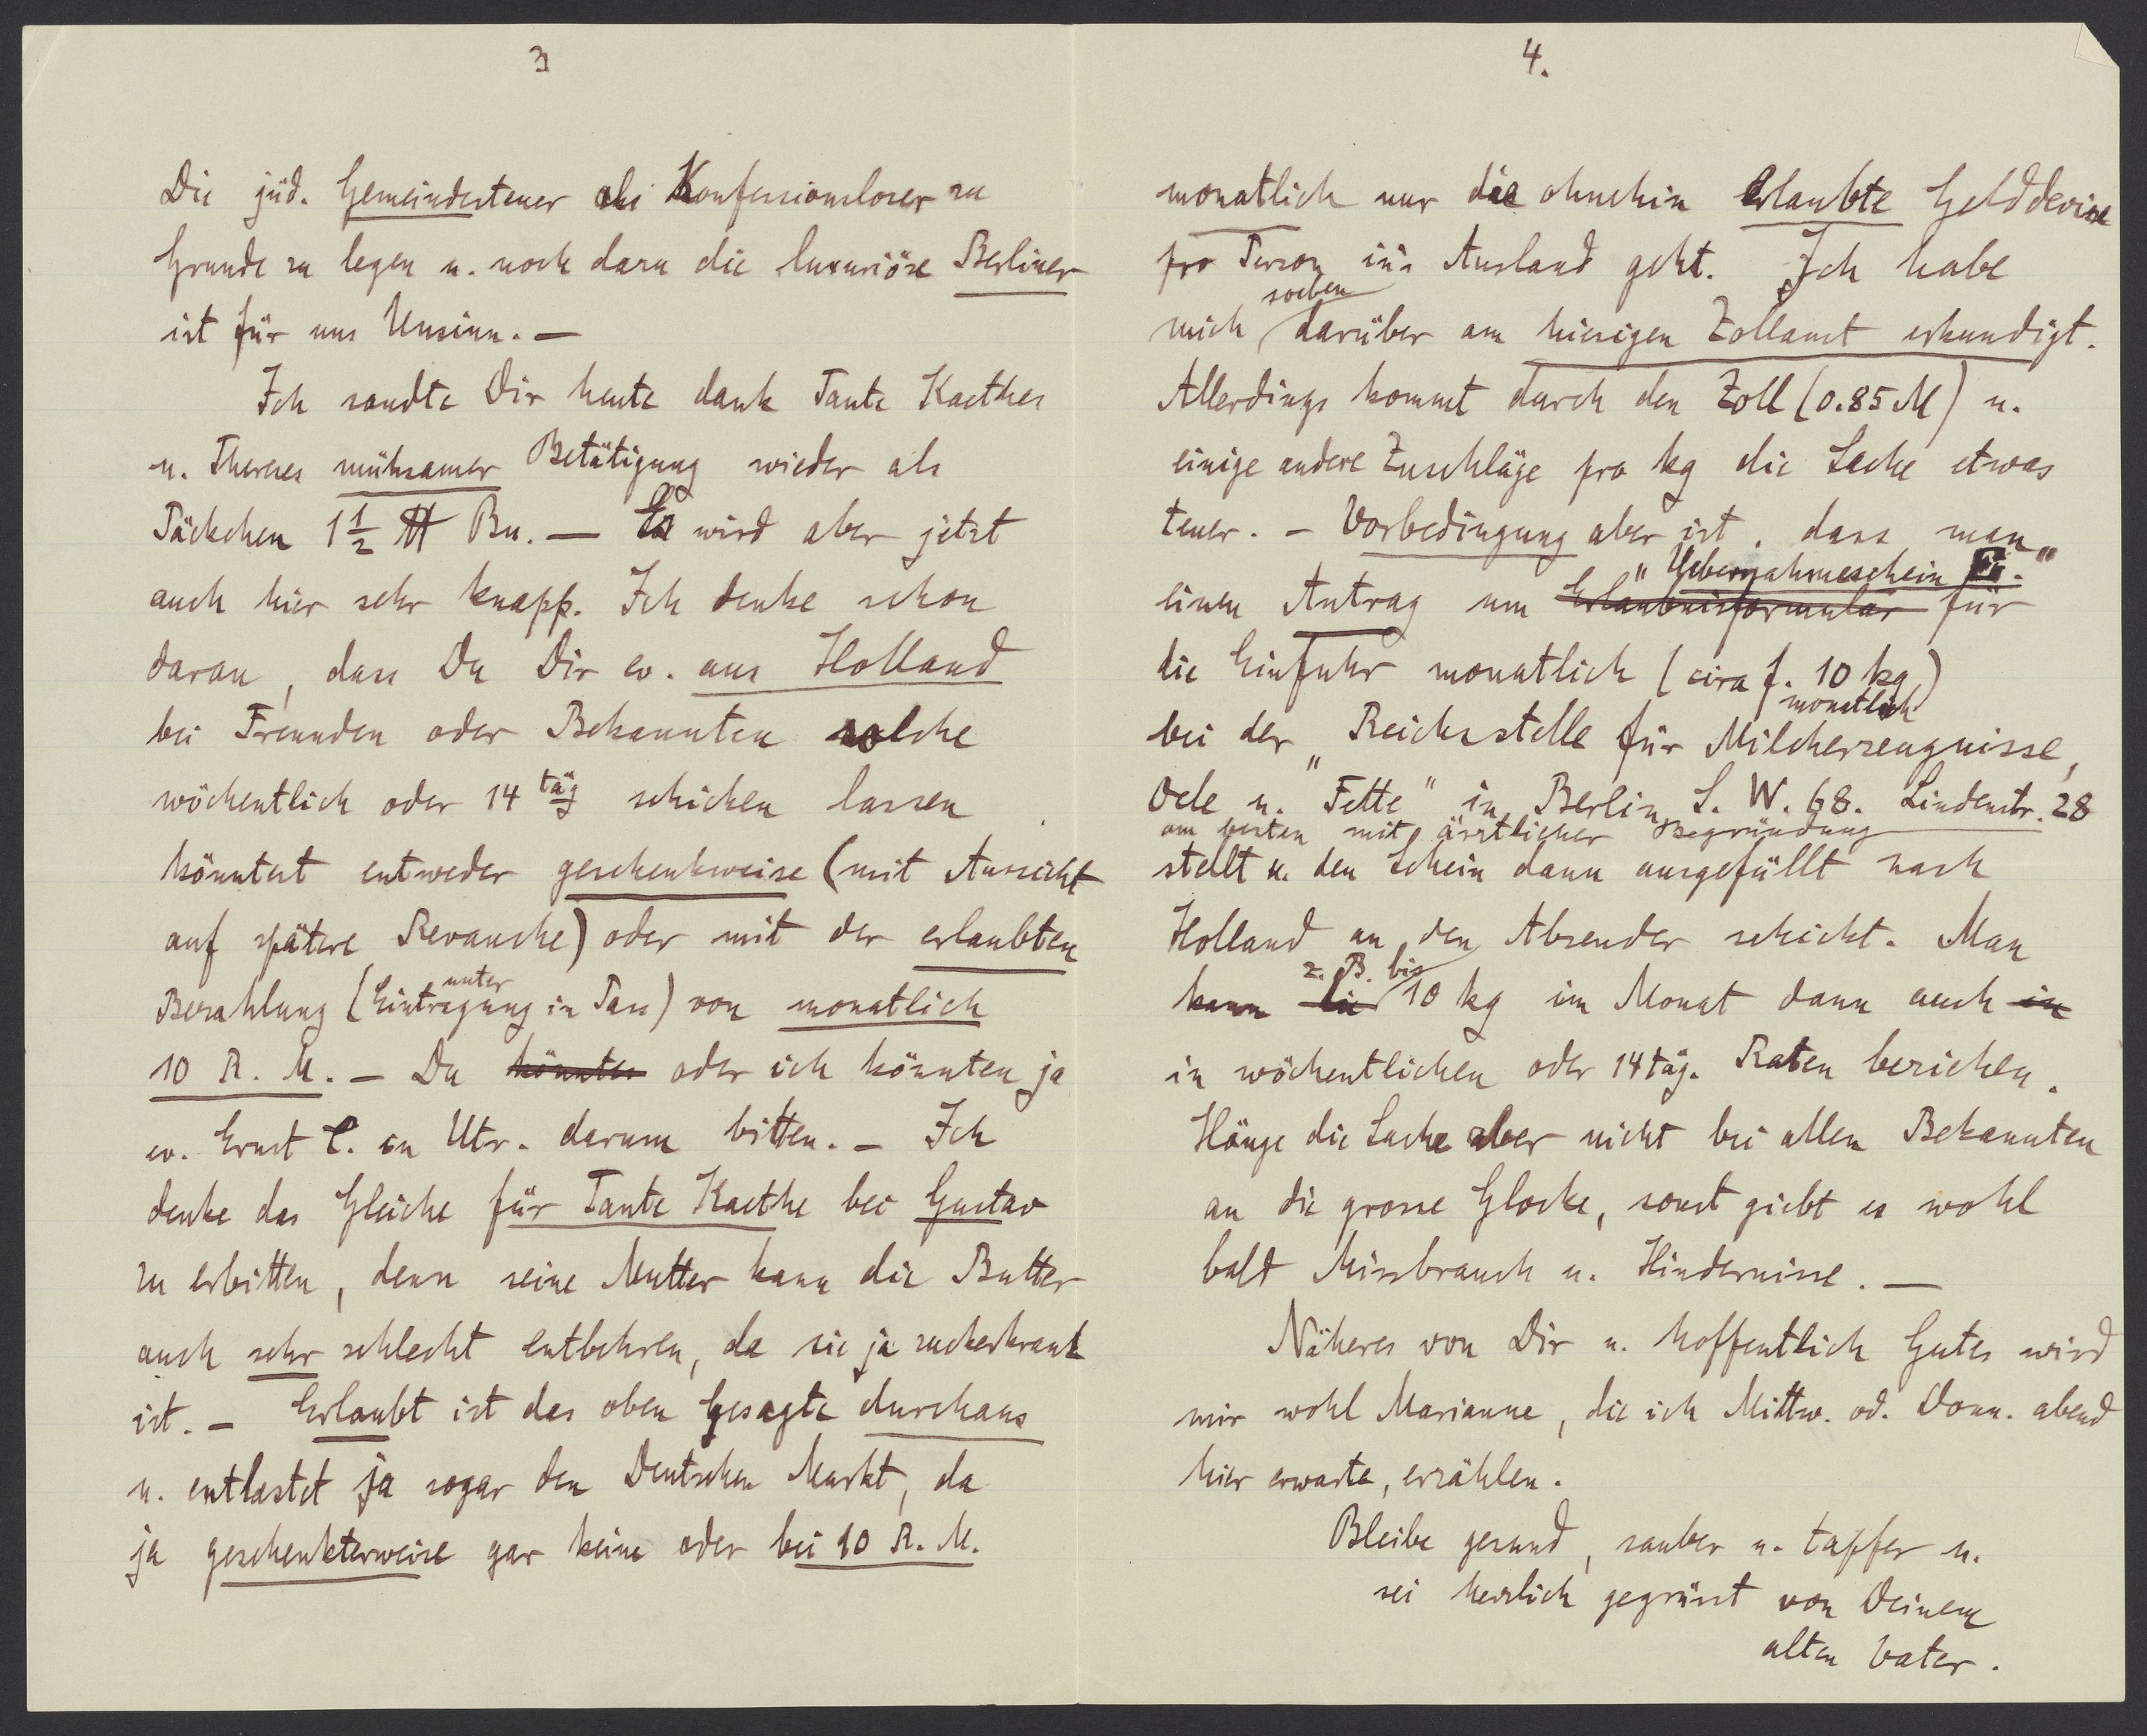 3
Die jüd. Gemeindesteuer als Konfessionsloser zu
Grunde zu legen u. noch dazu die luxuriöse Berliner
ist für uns Unsinn. —
Ich sandte Dir heute dank Tante Kaethes
u. Thereses mühsamer Betätigung wieder als
Päckchen 1 1/2 ℔ Bu. — Es wird aber jetzt
auch hier sehr knapp. Ich denke schon
daran, dass Du Dir ev. aus Holland
bei Freunden oder Bekannten solche
wöchentlich oder 14 täg schicken lassen
könntest entweder geschenkweise (mit Aussicht
auf spätere Revanche) oder mit der erlaubten
unter
Bezahlung (Eintragung in Pass) von monatlich
10 R. M. — Du könntes oder ich könnten ja
ev. Ernst C. in Utr. darum bitten. — Ich
denke das Gleiche für Tante Kaethe bei Gustav
zu erbitten, denn seine Mutter kann die Butter
auch sehr schlecht entbehren, da sie ja zuckerkrank
ist. — Erlaubt ist das oben Gesagte durchaus
u. entlastet ja sogar den Deutschen Markt, da
ja geschenkterweise gar keine oder bei 10 R. M.
4.
monatlich nur die ohnehin erlaubte Gelddevise
pro Person in's Ausland geht. Ich habe
soeben
mich darüber am hiesigen Zollamt erkundigt.
Allerdings kommt durch den Zoll (0.85 M) u.
einige andere Zuschläge pro kg die Sache etwas
teuer. — Vorbedingung aber ist, dass man
"Uebernahmeschein
einen Antrag um Erlaubnisformular für
die Einfuhr monatlich (cira f. 10 kg)
monatlich
bei der "Reichsstelle für Milcherzeugnisse,
Oele u. Fette" in Berlin S. W. 68. Lindenstr. 28
am besten mit ärztlicher Begründung
stellt u. den Schein dann ausgefüllt nach
Holland an den Absender schickt. Man
z. B. bis
kann die 10 kg im Monat dann auch in
in wöchentlichen oder 14 täg. Raten beziehen.
Hänge die Sache aber nicht bei allen Bekannten
an die grosse Glocke, sonst giebt es wohl
bald Missbrauch u. Hindernisse. —
Näheres von Dir u. hoffentlich Gutes wird
mir wohl Marianne, die ich Mittw. od. Donn. abend
hier erwarte, erzählen.
Bleibe gesund, sauber u. tapfer u.
sei herzlich gegrüsst von Deinem
alten Vater.